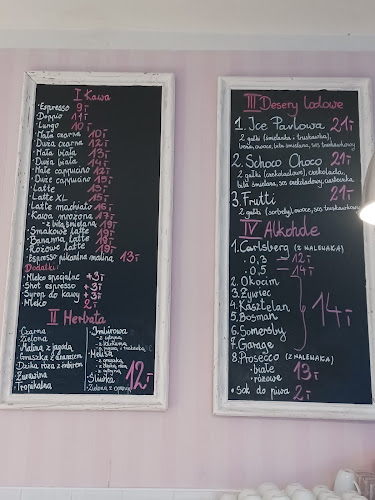 I Kawa
· Espresso 9 zł
· Doppio 11 zł
· Lungo 10 zł
· Mała czarna 10 zł
· Duża czarna 12 zł
· Mała biała 13 zł
· Duża biała 14 zł
· Małe cappucino 12 zł
· Duże cappucino 15 zł
· Latte 15 zł
· Latte XL 15 zł
· Latte machiato 16 zł
· Kawa mrożona 17 zł
- z bitą śmietaną 19 zł
· Smakowe latte 19 zł
· Banana latte 18 zł
· Różowe latte 19 zł
· Espresso pikantna malina 13 zł
Dodatki:
· Mleko specjalne +3 zł
· Shot espresso +3 zł
· Syrop do kawy +3 zł
· Mleko 2 zł
II Herbata
· Czarna
· Zielona
· Malina z jagodą
· Gruszka z ananasem
· Dzika róża z imbirem
· Żurawina
· Tropikalna
· Imbirowa
- z cytryną
· Melisa
· Śliwka
· Zielona z
12 zł
III Desery lodowe
1. Ice Pavlowa 21 zł
2 gałki (śmietanka + truskawka),
beza, owoce, bita śmietana, sos truskawkowy
2. Schoco Choco 21 zł
2 gałki (czekoladowe), czekolada,
bita śmietana, sos czekoladowy, ciasteczka
3. Frutti 21 zł
2 gałki (sorbety), owoce, sos truskawkowy
IV Alkohole
1. Carlsberg (z nalewaka)
· 0,3 - 12 zł
· 0,5 - 14 zł
2. Okocim
3. Żywiec
4. Kasztelan
5. Bosman
6. Somersby
7. Garage
14 zł
8. Prosecco (z nalewaka)
· białe
· różowe
13 zł
· Sok do piwa 2 zł